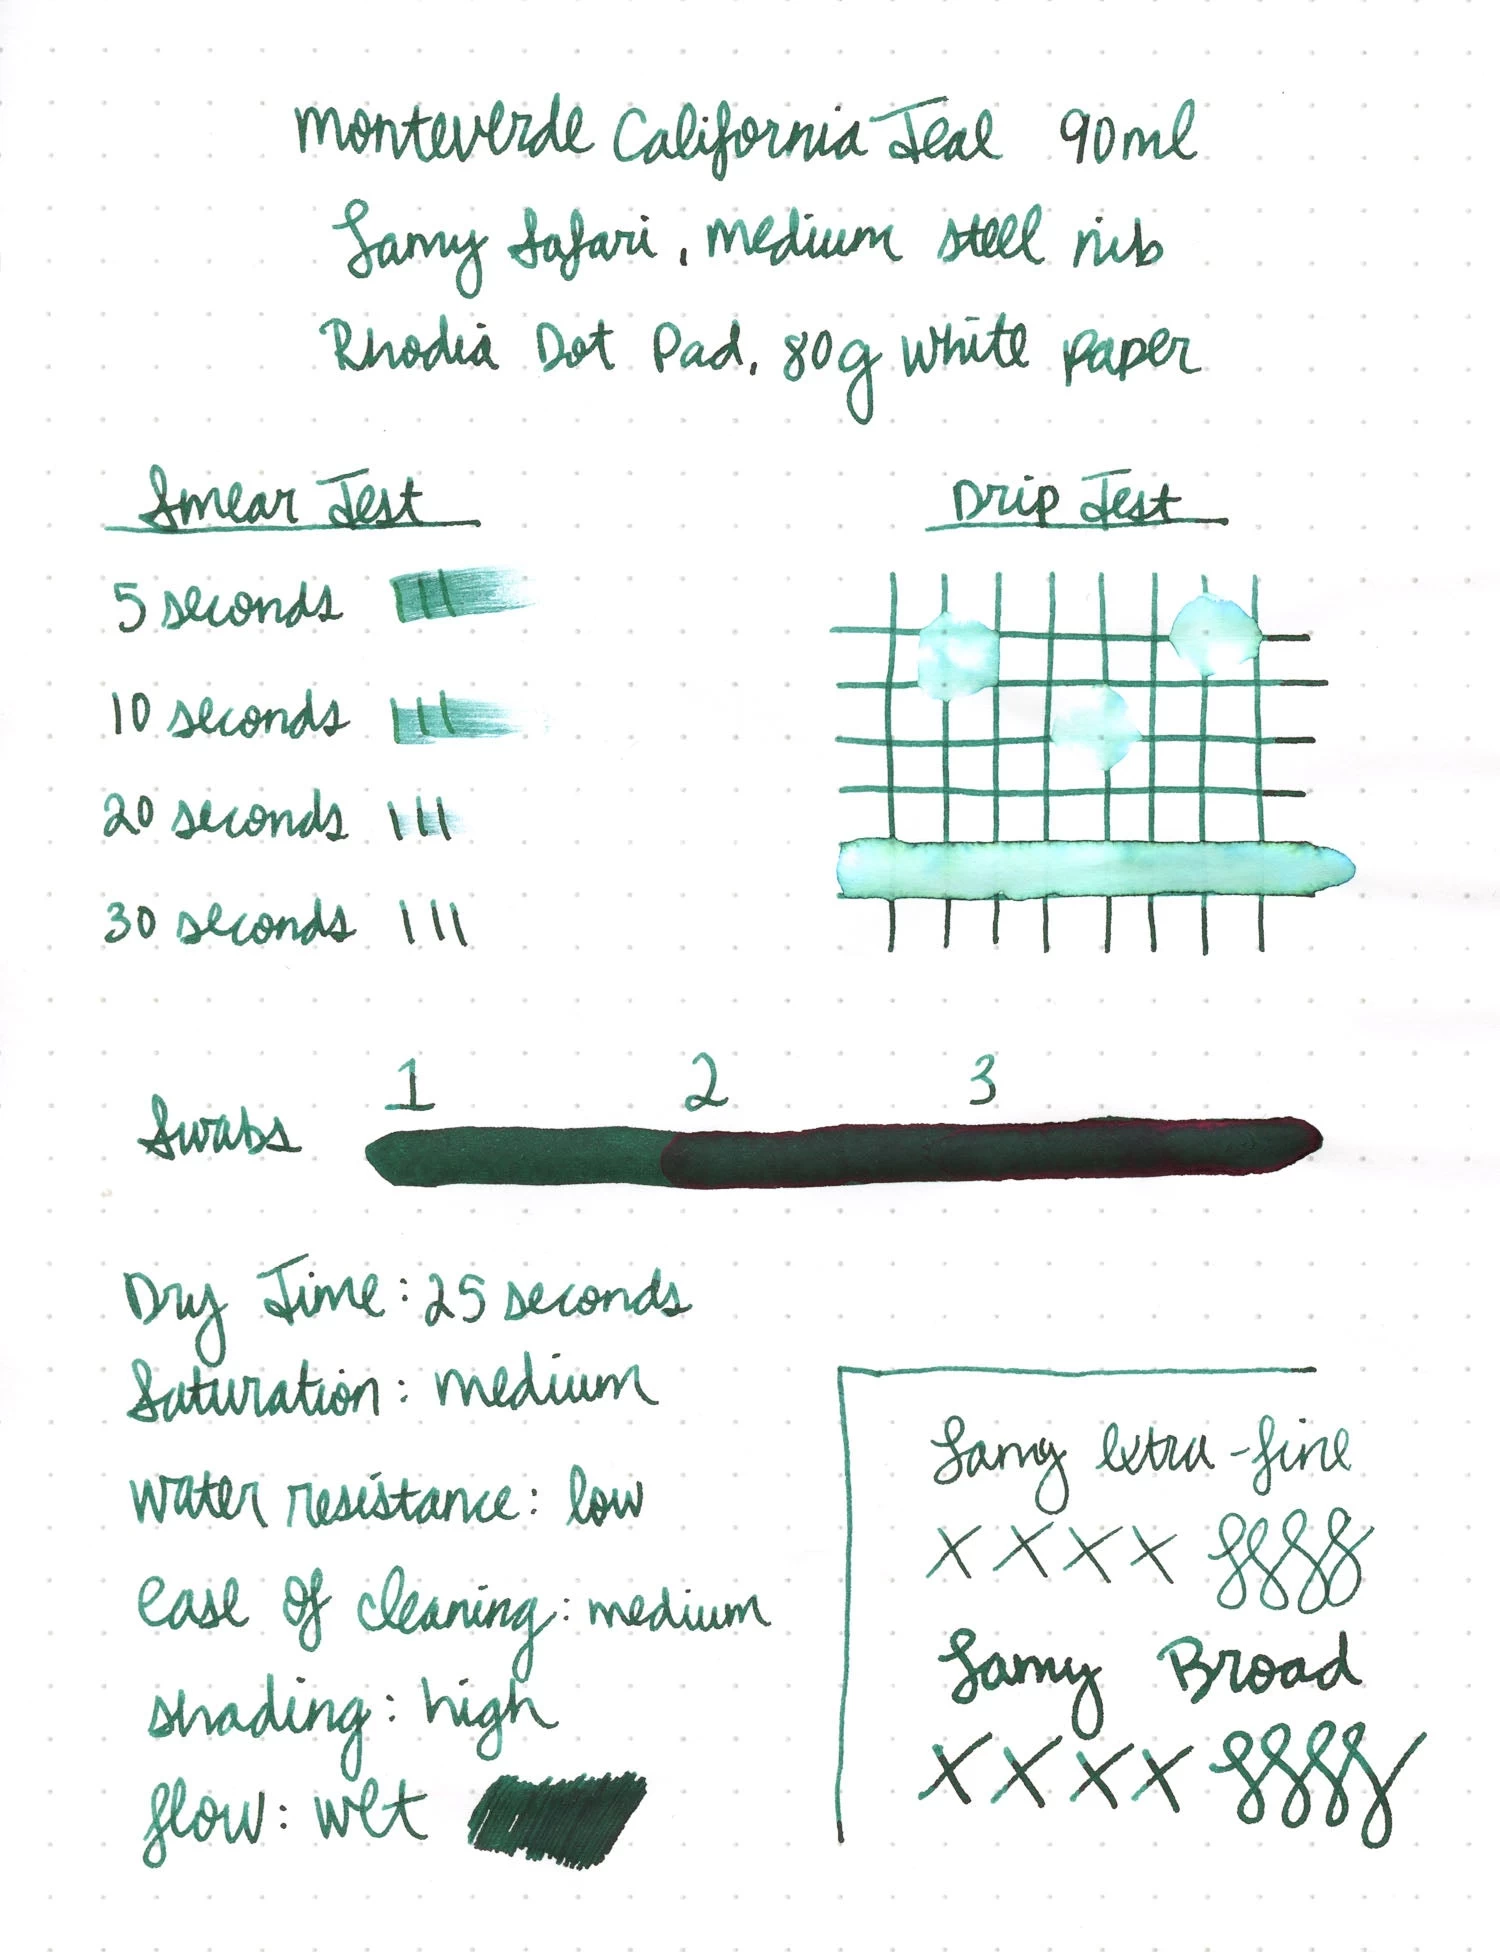 Monteverde California Teal 90ml
Lamy Safari, medium steel nib
Rhodia Dot Pad, 80g white paper
Smear Test
5 seconds
10 seconds
20 seconds
30 seconds
Drip Test
Swabs
1 2 3
Dry Time: 25 seconds
Saturation: medium
Water resistance: low
Ease of cleaning: medium
Shading: high
flow: wet
Lamy extra-fine
x x x x
Lamy Broad
x x x x